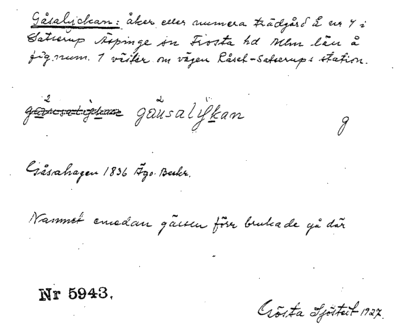 Gåsalyckan: åker eller numera trädgård å nr 4 i
Satserup Äspinge sn Frosta hd Mlm län å
fig.num. 1 väster om vägen Råset-Satserups station.
gåusalyckan
g
Gåsahagen 1836 Ägo. Beskr.
Namnet emedan gässen förr brukade gå där
Nr 5943.
Gösta Sjöstedt 1927.